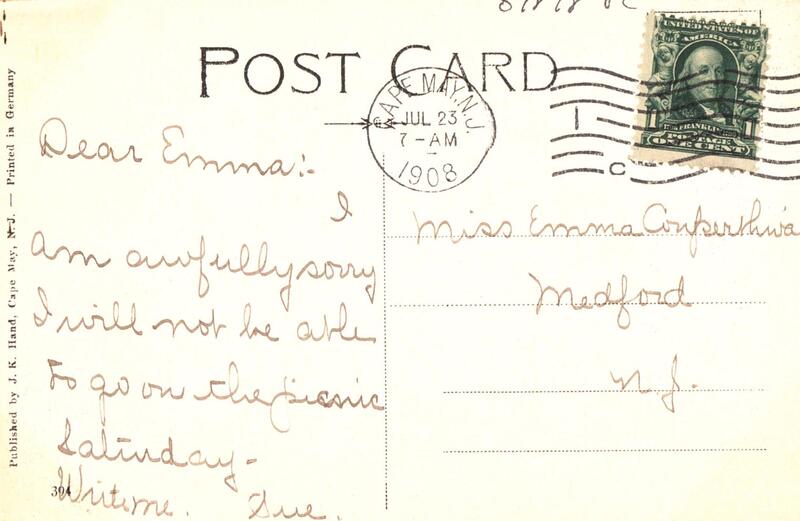 POST CARD
CAPE MAY, N.J.
JUL 23
7-AM
1908
1
C
UNITED STATES OF
AMERICA
1 1
FRANKLIN
POSTAGE
ONE CENT
Dear Emma:-
I
am awfully sorry
I will not be able
to go on the picnic
Saturday-
Write me. Sue.
Miss Emma
Medford
N.J.
304
Published by J. K. Hand, Cape May, N. J. — Printed in Germany